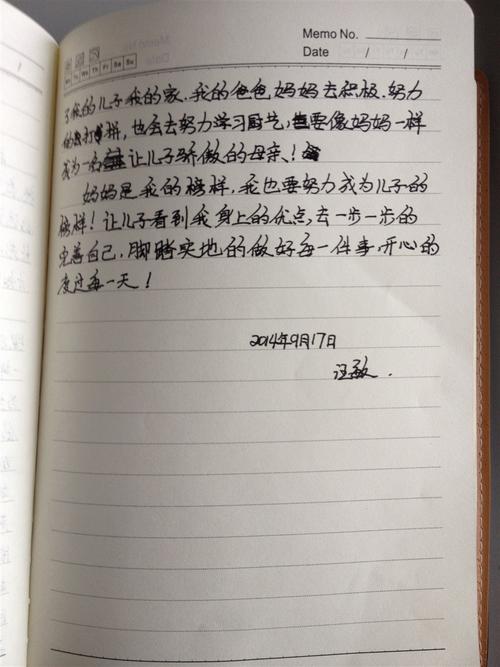 Memo No.
Date / /
Mo Tu We Th Fr Sa Su
了我的儿子我的家、我的爸爸妈妈去积极、努力
的打拼，也会去努力学习厨艺，要像妈妈一样
成为一名让儿子骄傲的母亲！
妈妈是我的榜样，我也要努力成为儿子的
榜样！让儿子看到我身上的优点，去一步一步的
完善自己，脚踏实地的做好每一件事，开心的
度过每一天！
2014年9月17日
汪敏.